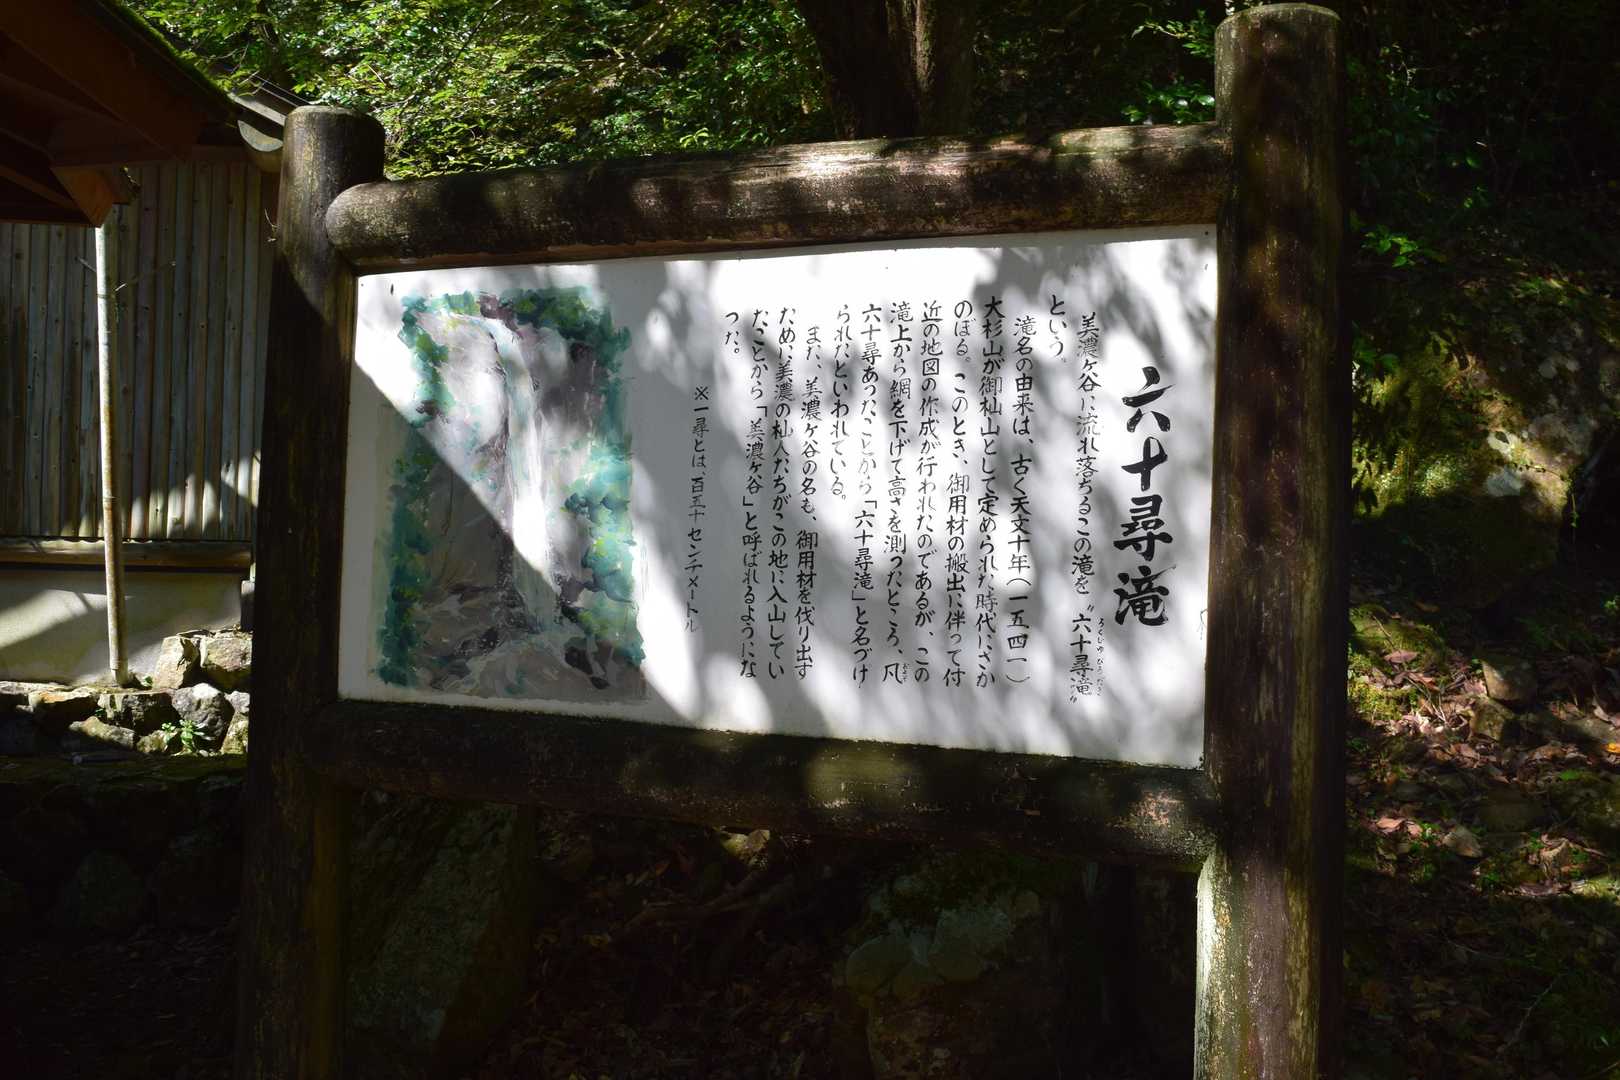 六十尋滝
美濃ヶ谷に流れ落ちるこの滝を〝六十尋滝〟
ろくじゅぴろだき
という。
滝名の由来は、古く天文十年（一五四一）
大杉山が御杣山として定められた時代にさか
のぼる。このとき、御用材の搬出に伴って付
近の地図の作成が行われたのであるが、この
滝上から綱を下げて高さを測ったところ、凡
六十尋あったことから「六十尋滝」と名づけ
られたといわれている。
また、美濃ヶ谷の名も、御用材を伐り出す
ために美濃の杣人たちがこの地に入山してい
たことから「美濃ヶ谷」と呼ばれるようにな
った。
※一尋とは、百五十センチメートル